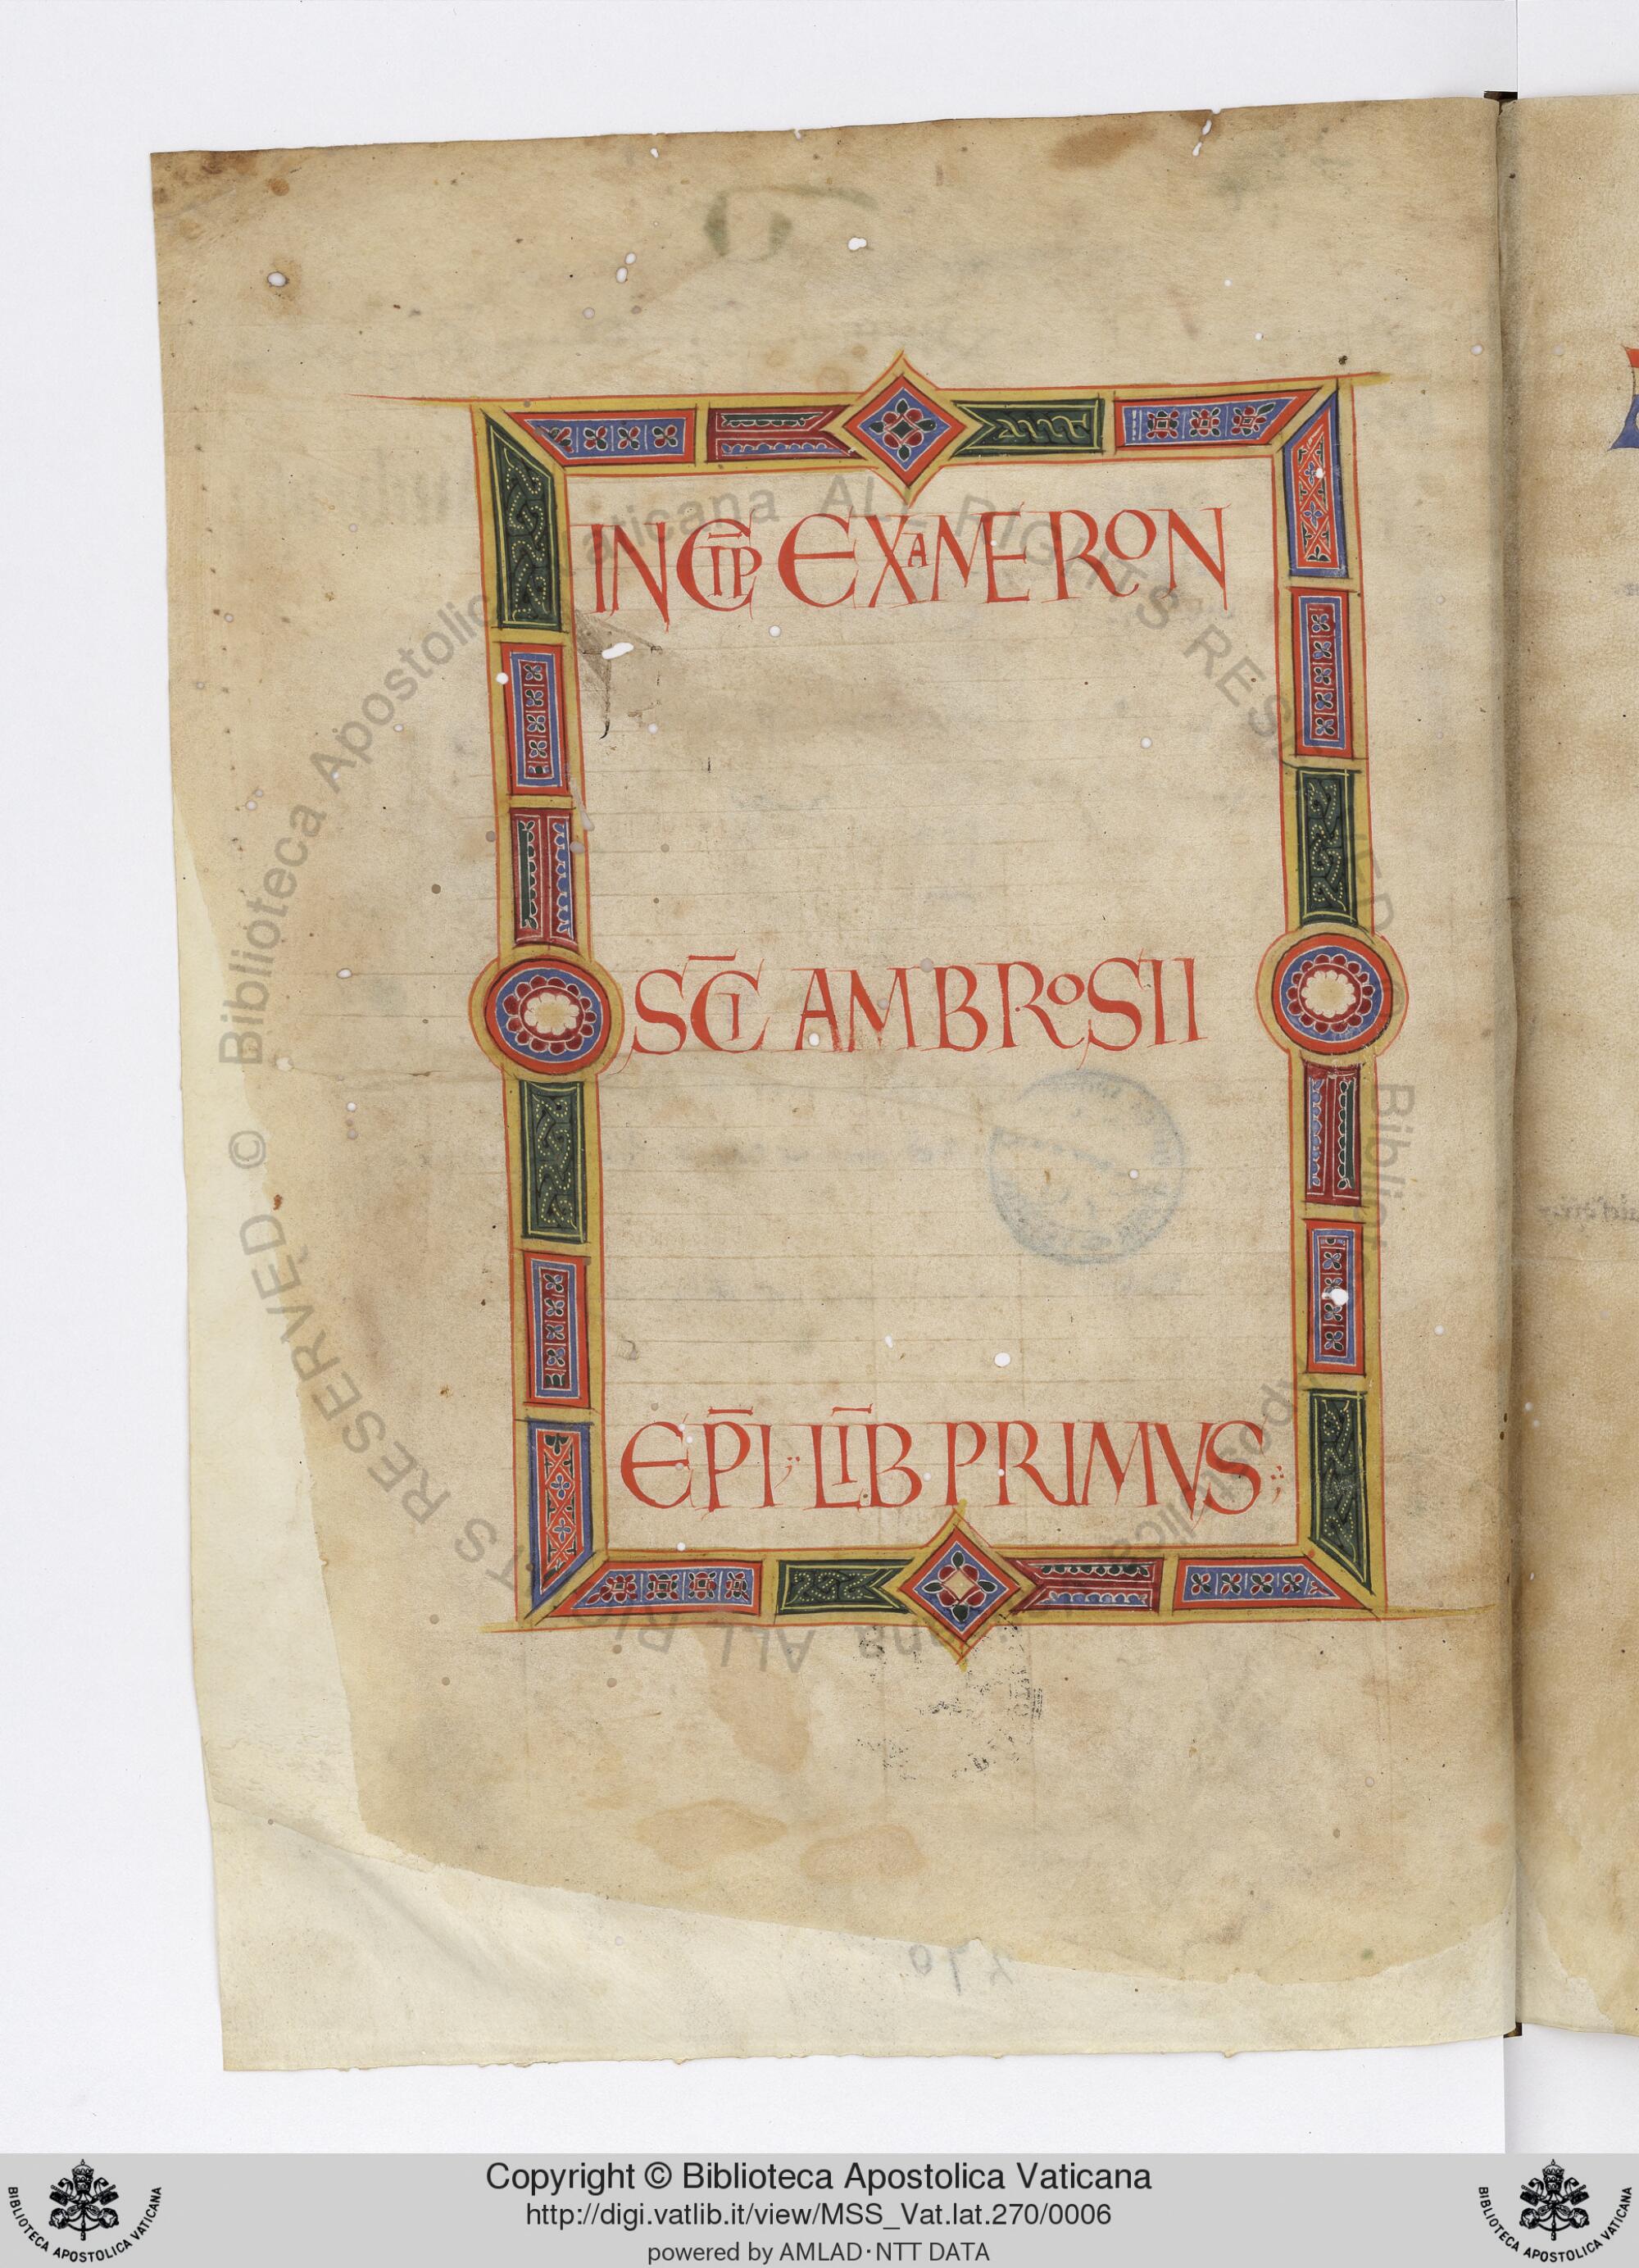 INCIP̄ EXAMERON
SC̄I AMBROSII
EP̄I· LIB̄ PRIMVS
Biblioteca Apostolica Vaticana ALL RIGHTS RESERVED © Biblioteca Apostolica Vaticana ALL RIGHTS RESERVED ©
270
Copyright © Biblioteca Apostolica Vaticana
http://digi.vatlib.it/view/MSS_Vat.lat.270/0006
powered by AMLAD·NTT DATA
BIBLIOTECA APOSTOLICA VATICANA
BIBLIOTECA APOSTOLICA VATICANA